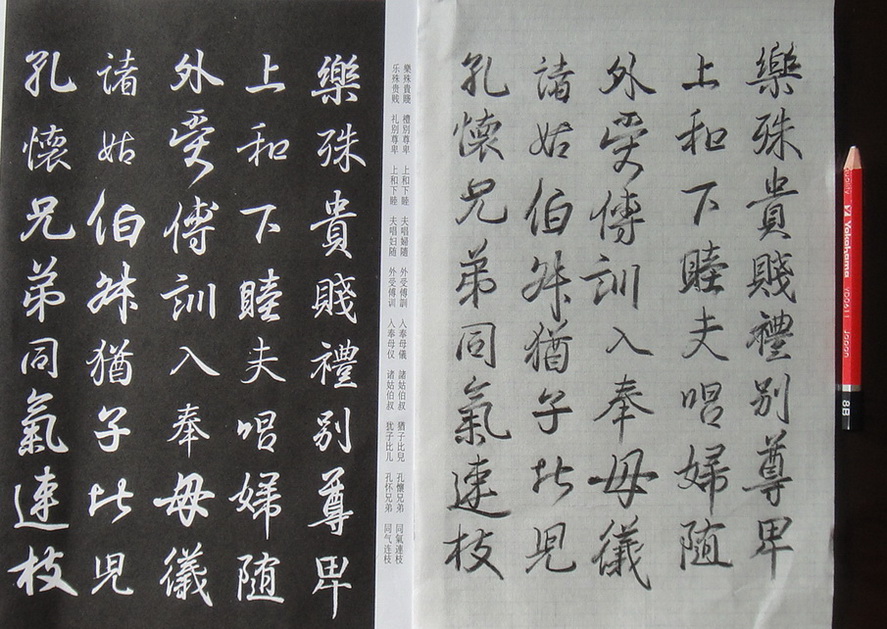 樂殊貴賤禮別尊卑
上和下睦夫唱婦随
外受傅訓入奉母儀
諸姑伯叔猶子比兒
孔懷兄弟同氣連枝
樂殊貴賤 禮別尊卑 上和下睦 夫唱婦隨 外受傅訓 入奉母儀 諸姑伯叔 猶子比兒 孔懷兄弟 同氣連枝
乐殊贵贱 礼别尊卑 上和下睦 夫唱妇随 外受傅训 入奉母仪 诸姑伯叔 犹子比儿 孔怀兄弟 同气连枝
樂殊貴賤禮別尊卑
上和下睦夫唱婦随
外受傅訓入奉母儀
諸姑伯叔猶子比兒
孔懷兄弟同氣連枝
Yokohama YP0611 JAPAN 8B